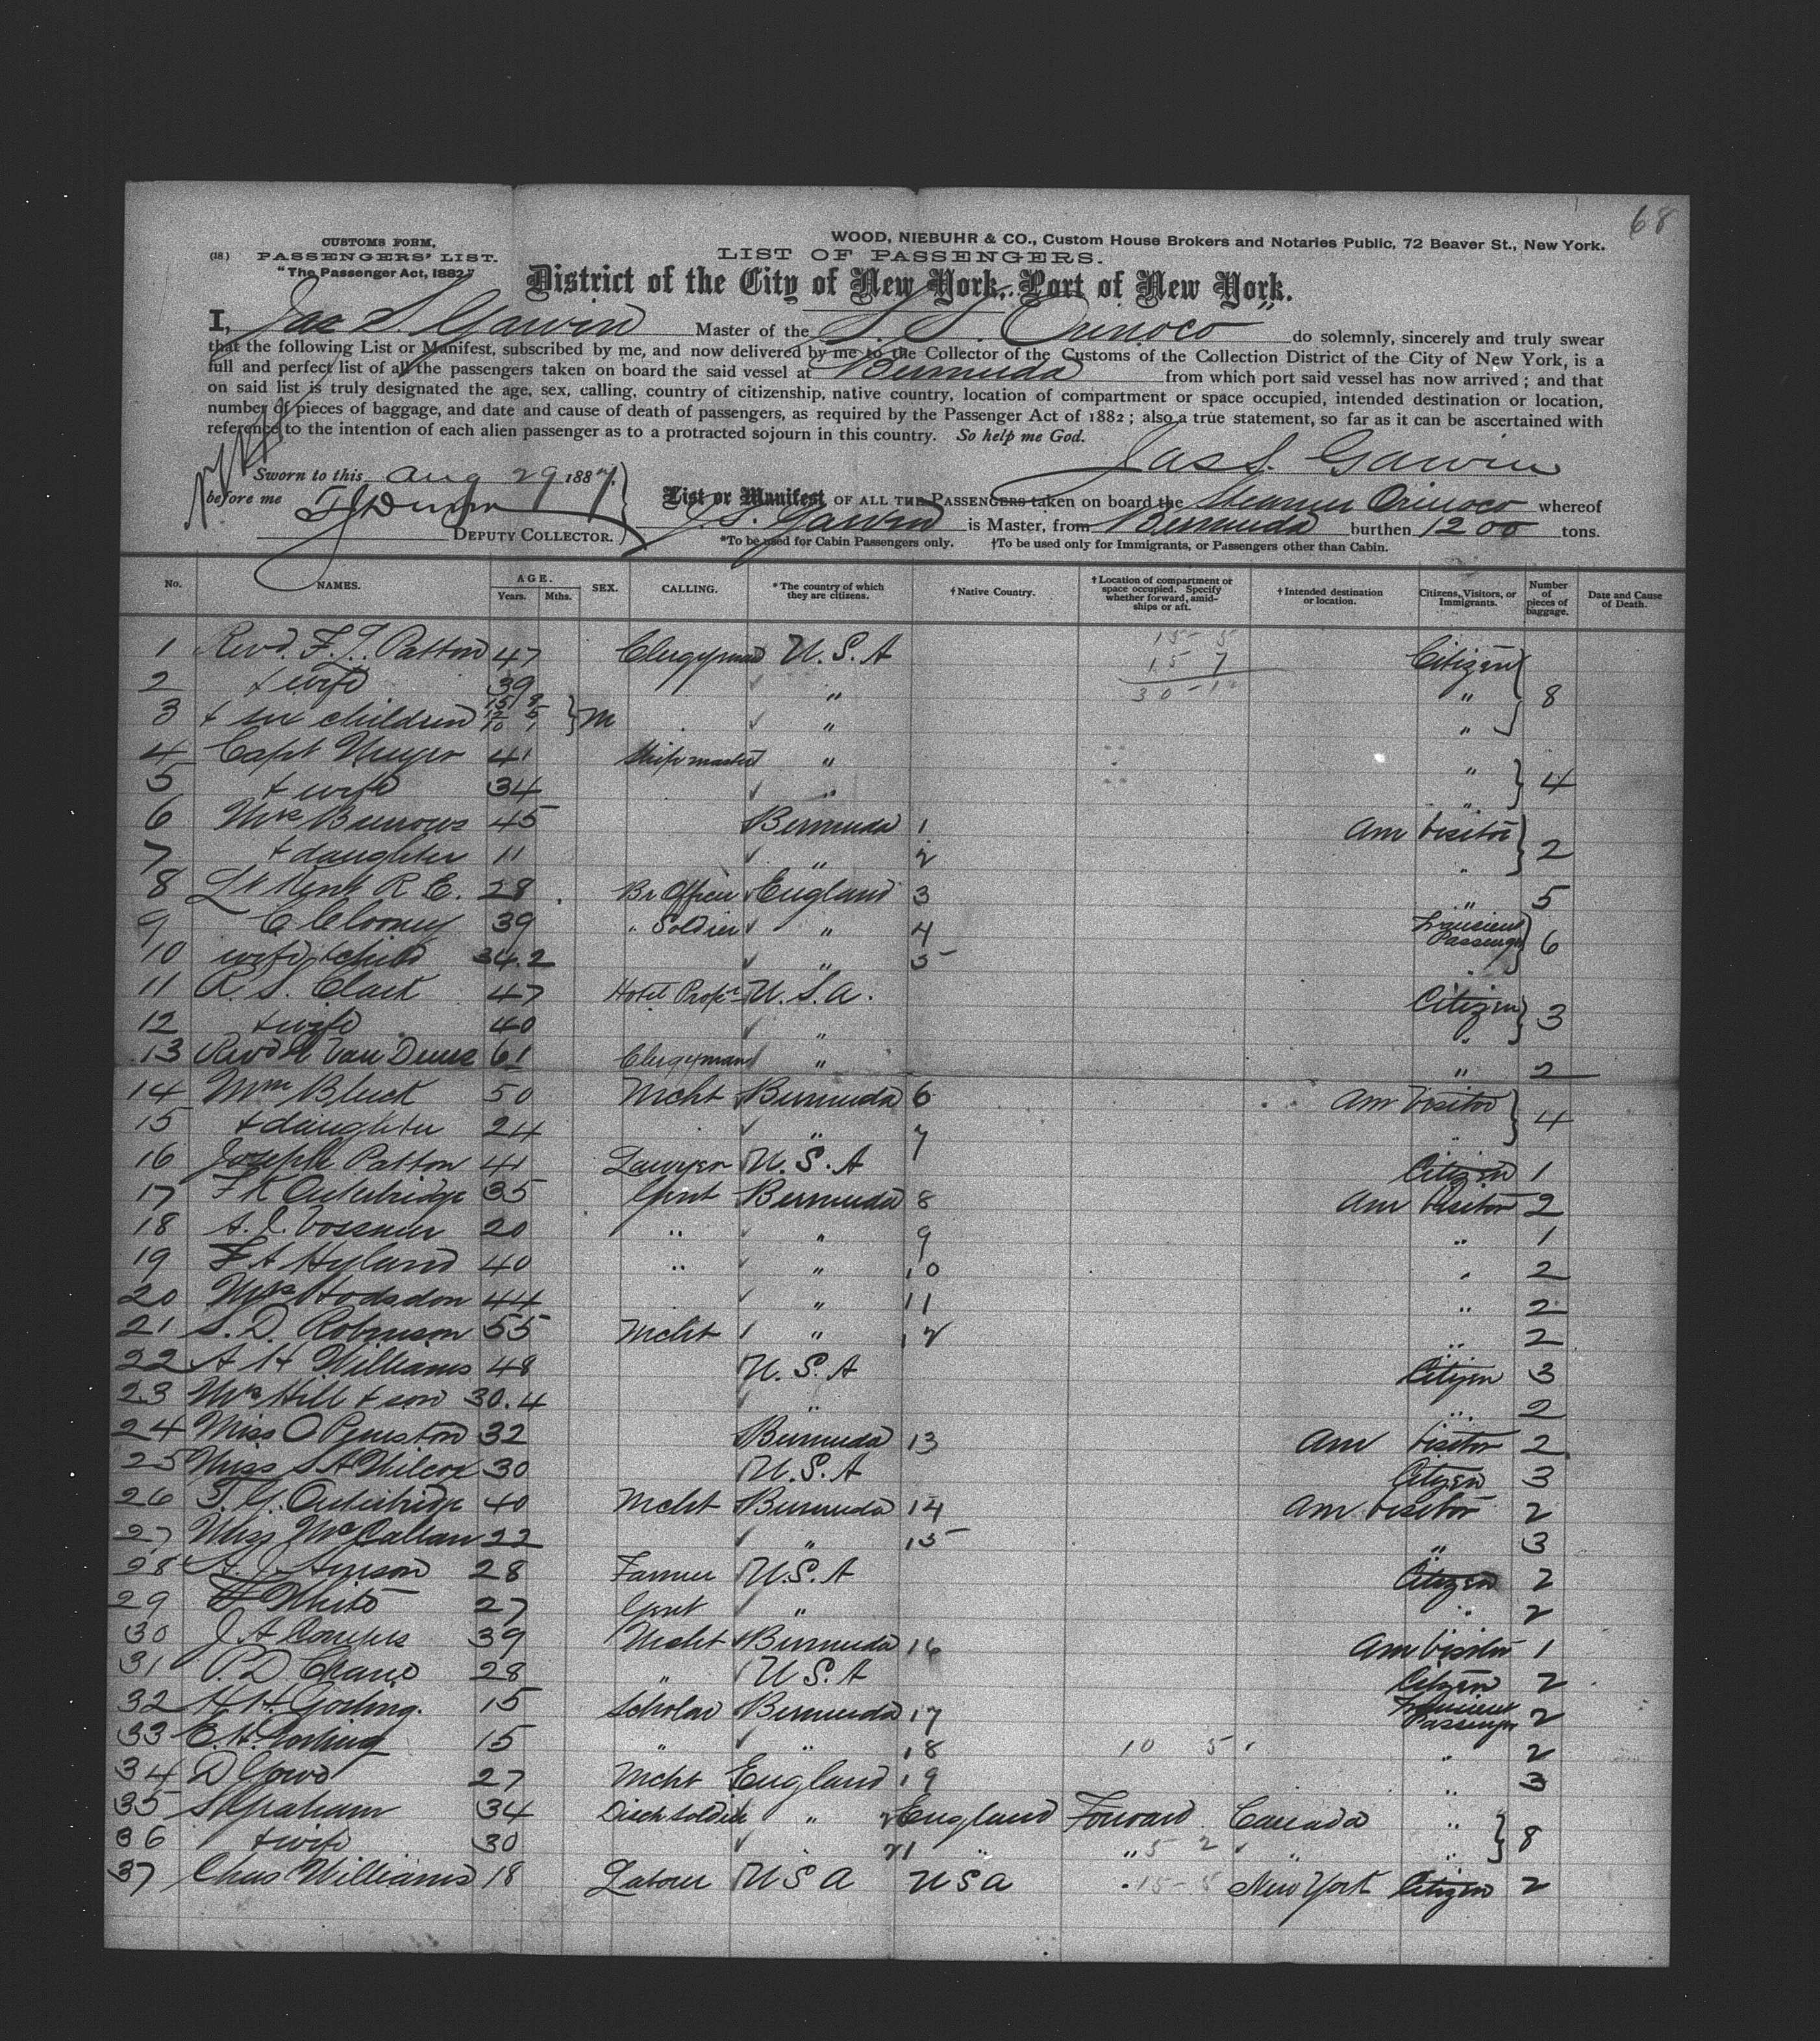 68
CUSTOMS FORM,
WOOD, NIEBUHR & CO., Custom House Brokers and Notaries Public, 72 Beaver St., New York.
(18) PASSENGERS' LIST.
LIST OF PASSENGERS.
"The Passenger Act, 1882."
District of the City of New York, Port of New York.
I, Jas S. Garvin Master of the S.S. Orinoco do solemnly, sincerely and truly swear
that the following List or Manifest, subscribed by me, and now delivered by me to the Collector of the Customs of the Collection District of the City of New York, is a
full and perfect list of all the passengers taken on board the said vessel at Bermuda from which port said vessel has now arrived ; and that
on said list is truly designated the age, sex, calling, country of citizenship, native country, location of compartment or space occupied, intended destination or location,
number of pieces of baggage, and date and cause of death of passengers, as required by the Passenger Act of 1882 ; also a true statement, so far as it can be ascertained with
reference to the intention of each alien passenger as to a protracted sojourn in this country. So help me God.
Jas S. Garvin
Sworn to this Aug 29 1887.
before me
DEPUTY COLLECTOR.
List or Manifest OF ALL THE PASSENGERS taken on board the Steamer Orinoco whereof
J. S. Garvin is Master, from Bermuda burthen 1200 tons.
*To be used for Cabin Passengers only. †To be used only for Immigrants, or Passengers other than Cabin.
No. NAMES. AGE. Years. Mths. SEX. CALLING. *The country of which they are citizens. †Native Country. †Location of compartment or space occupied. Specify whether forward, amidships or aft. †Intended destination or location. Citizens, Visitors, or Immigrants. Number of pieces of baggage. Date and Cause of Death.
1 Revd. F. L. Patton 47 Clergyman U.S.A Citizen
2 + wife 39 " " 8
3 + six children 15 9 12 5 10 1 M " "
4 Capt 41 Ship master " " 4
5 + wife 34 " "
6 Mrs Burrows 45 Bermuda 1 Am Visitor 2
7 + daughter 11 " 2 "
8 Lt Kent R.E. 28 Br Officer England 3 " 5
9 C Clooney 39 " Soldier " 4 Transient Passenger 6
10 wife + child 34.2 " 5 "
11 A. S. Clark 47 Hotel Propr U.S.A. Citizen 3
12 + wife 40 " "
13 Revd Van 61 Clergyman " " 2
14 Wm Bluck 50 Mcht Bermuda 6 Am Visitor 4
15 + daughter 24 " 7 "
16 Joseph Patton 41 Lawyer U.S.A Citizen 1
17 F K Outerbridge 35 Gent Bermuda 8 Am Visitor 2
18 A. J. 20 " " 9 " 1
19 F A Hyland 40 " " 10 " 2
20 Mrs Hodsdon 44 " 11 " 2
21 S. D. Robinson 55 Mcht " 12 " 2
22 A H Williams 48 U.S.A Citizen 3
23 Mrs Hill + son 30.4 " " 2
24 Miss O Peniston 32 Bermuda 13 Am Visitor 2
25 Miss S A Wilcox 30 U.S.A Citizen 3
26 T. G. Outerbridge 40 Mcht Bermuda 14 Am Visitor 2
27 Miss McCallan 22 " 15 " 3
28 A. J. 28 Farmer U.S.A Citizen 2
29 White 27 Gent " " 2
30 J A Conyers 39 Mcht Bermuda 16 Am Visitor 1
31 P. D. Crane 28 " U.S.A Citizen 2
32 H. H. Gosling. 15 Scholar Bermuda 17 Transient Passenger 2
33 E. H. Gosling 15 " " 18 10 5 " 2
34 D Gowd 27 Mcht England 19 " 3
35 S Graham 34 Disch Soldier " 20 England Forward Canada " 8
36 + wife 30 21 " " 5 2 " "
37 Chas Williams 18 Labour U S A U S A 15-5 New York Citizen 2